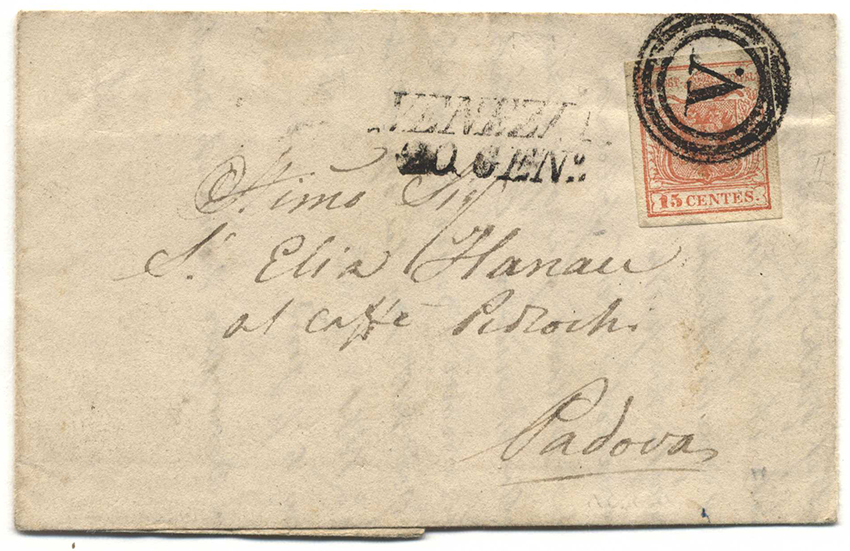 V.
VENEZIA.
20. GEN.º
15 CENTES.
Sig
S.r Elia Hanau
al caffè Pedrochi
Padova